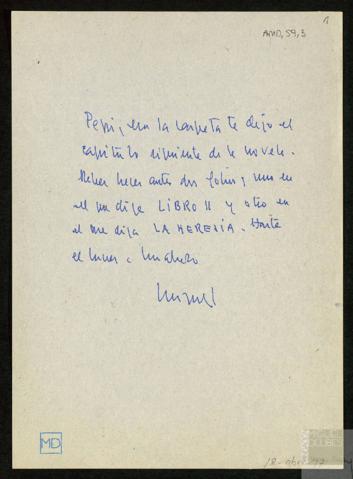 1
AMD, 59, 3
Pepi, en la carpeta te dejo el
capítulo siguiente de la novela.
Debes hacer antes dos folios, uno en
el que diga LIBRO II y otro en
el que diga LA HEREJÍA. Hasta
el lunes. Un abrazo
Miguel
MD